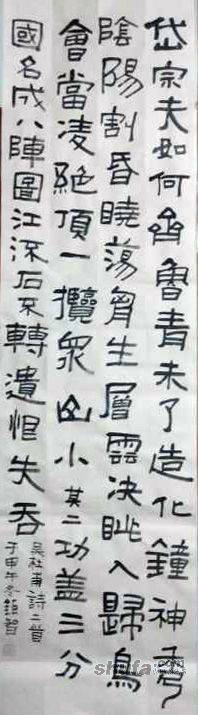 岱宗夫如何齊魯青未了造化鐘神秀
陰陽割昏曉蕩胷生層雲決眦入歸鳥
會當凌絕頂一攬眾山小其二功盖三分
國名成八陣圖江流石不轉遺恨失吞
吴杜甫詩二首
于甲午冬智